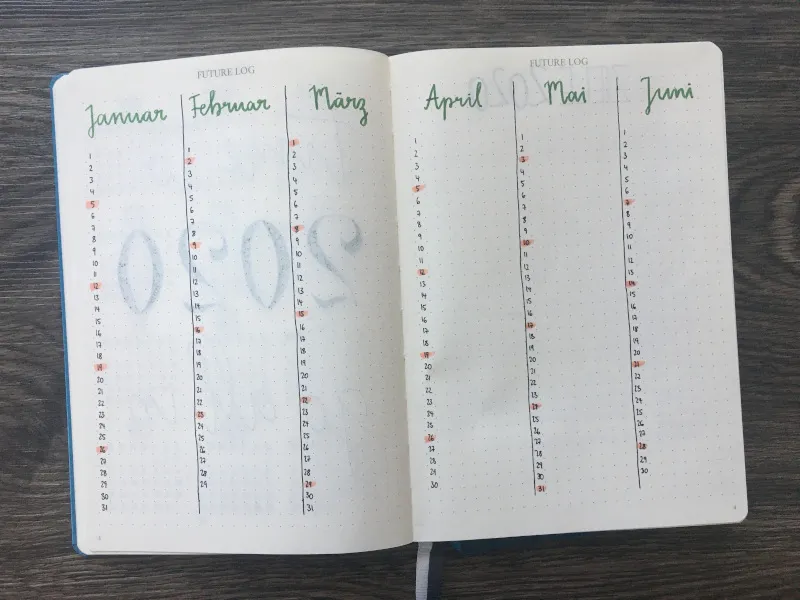 FUTURE LOG
Januar
1
2
3
4
5
6
7
8
9
10
11
12
13
14
15
16
17
18
19
20
21
22
23
24
25
26
27
28
29
30
31
Februar
1
2
3
4
5
6
7
8
9
10
11
12
13
14
15
16
17
18
19
20
21
22
23
24
25
26
27
28
29
März
1
2
3
4
5
6
7
8
9
10
11
12
13
14
15
16
17
18
19
20
21
22
23
24
25
26
27
28
29
30
31
FUTURE LOG
April
1
2
3
4
5
6
7
8
9
10
11
12
13
14
15
16
17
18
19
20
21
22
23
24
25
26
27
28
29
30
Mai
1
2
3
4
5
6
7
8
9
10
11
12
13
14
15
16
17
18
19
20
21
22
23
24
25
26
27
28
29
30
31
Juni
1
2
3
4
5
6
7
8
9
10
11
12
13
14
15
16
17
18
19
20
21
22
23
24
25
26
27
28
29
30